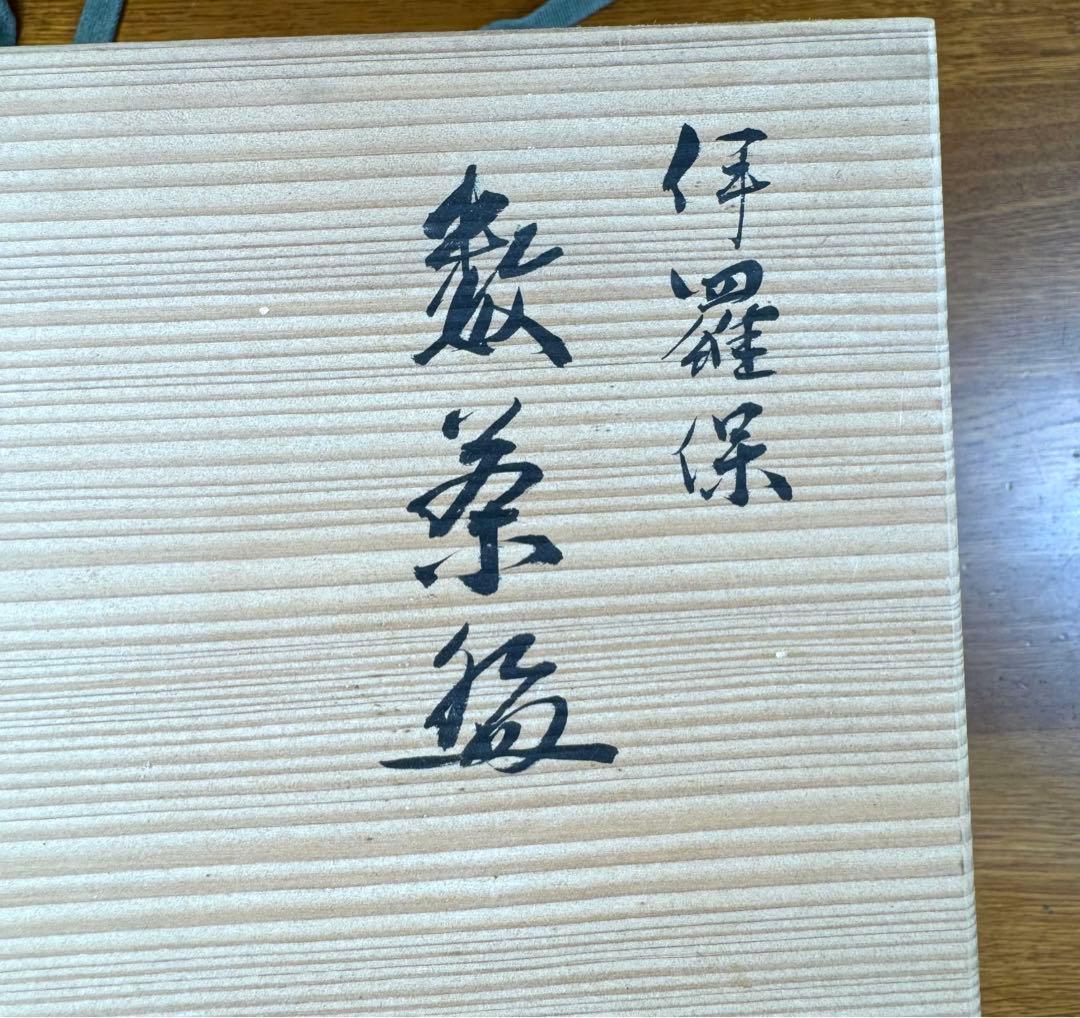 伊羅保
数茶盌